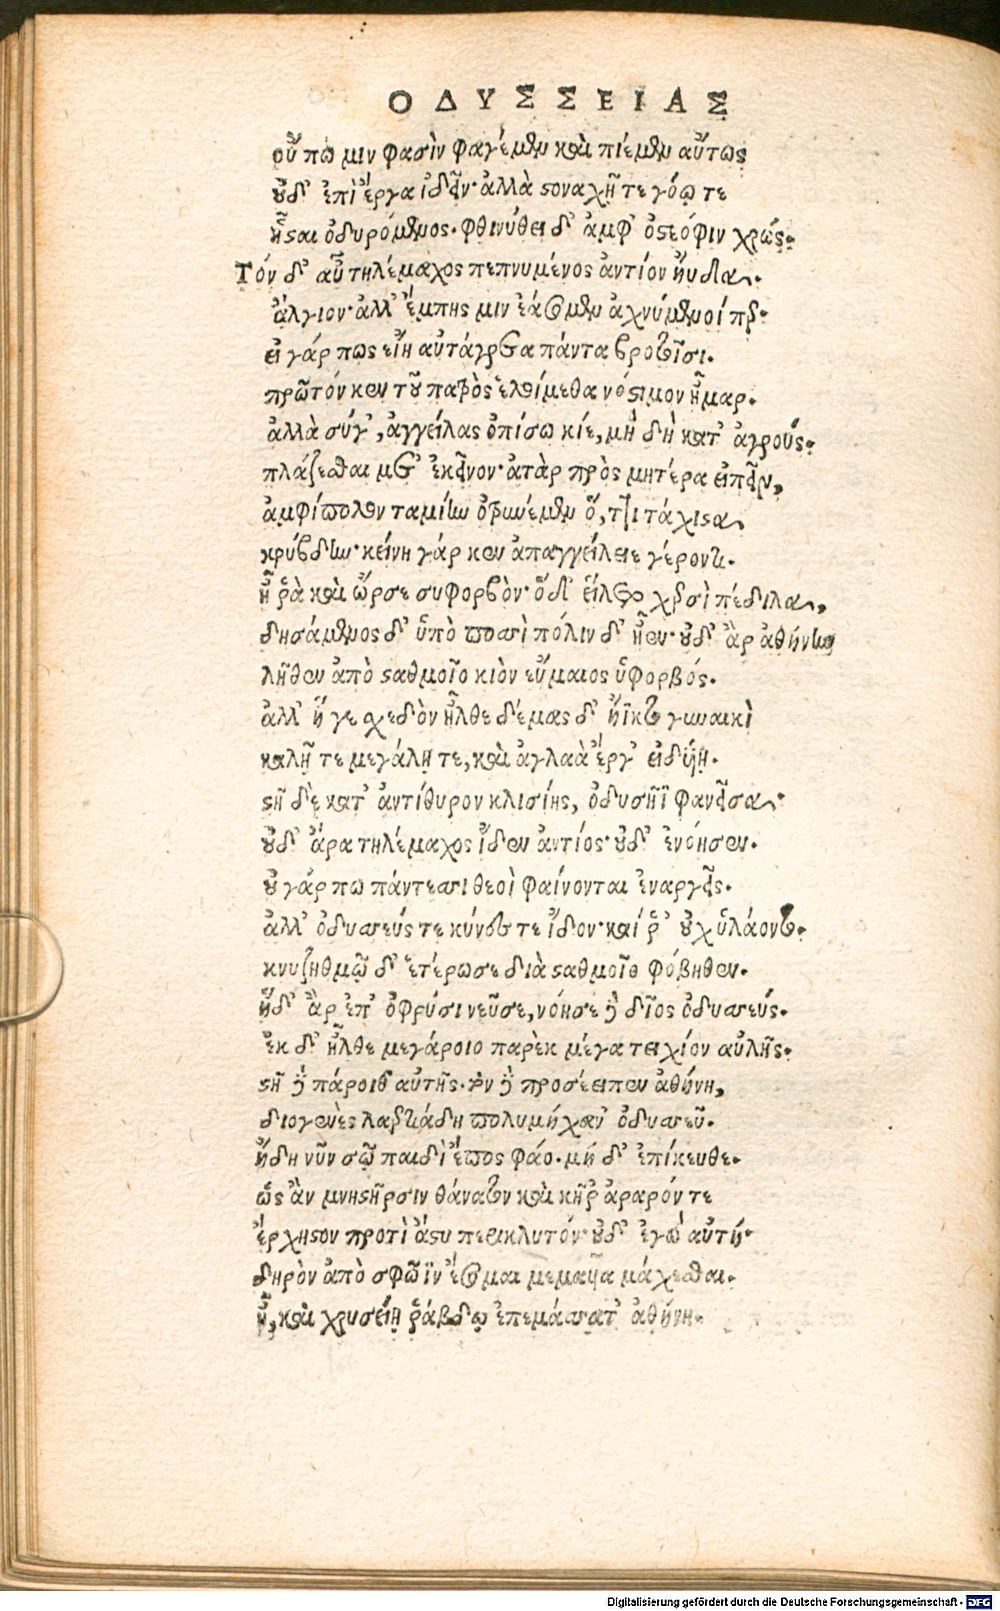 ΟΔΥΣΣΕΙΑΣ
οὔ πω μιν φασὶν φαγέμεν καὶ πιέμεν αὔτως
οὐδ' ἐπὶ ἔργα ἰδεῖν· ἀλλὰ στοναχῇ τε γόῳ τε
ἧσται ὀδυρόμενος· φθινύθει δ' ἀμφ' ὀστεόφιν χρώς·
Τόν δ' αὖ τηλέμαχος πεπνυμένος ἀντίον ηὔδα·
ἄλγιον· ἀλλ' ἔμπης μιν ἐάσομεν ἀχνύμενοί περ·
εἰ γάρ πως εἴη αὐτάγρετα πάντα βροτοῖσι·
πρῶτόν κεν τοῦ πατρὸς ἑλοίμεθα νόστιμον ἦμαρ·
ἀλλὰ σύγ', ἀγγείλας ὀπίσω κίε, μὴ δὴ κατ' ἀγρούς·
πλάζεσθαι μετ' ἐκεῖνον· ἀτὰρ πρὸς μητέρα εἰπεῖν,
ἀμφίπολον ταμίην ὀτρυνέμεν ὅ,ττι τάχιστα,
κρύβδην· κείνη γάρ κεν ἀπαγγείλειε γέροντι·
ἦ ῥὰ καὶ ὦρσε συφορβὸν· ὅδ' εἵλετο χερσὶ πέδιλα,
δησάμενος δ' ὑπὸ ποσσὶ πόλιν δ' ἦεν· οὐδ' ἂρ ἀθήνην
λῆθεν ἀπὸ σταθμοῖο κιὸν εὔμαιος ὑφορβός·
ἀλλ' ἥ γε σχεδὸν ἦλθε δέμας δ' ἤϊκτο γυναικὶ
καλῇ τε μεγάλῃ τε, καὶ ἀγλαὰ ἔργ' εἰδυίῃ·
στῆ δὲ κατ' ἀντίθυρον κλισίης, ὀδυσῆϊ φανεῖσα·
οὐδ' ἄρα τηλέμαχος ἴδεν ἀντίος· οὐδ' ἐνόησεν·
οὐ γάρ πω πάντεσσι θεοὶ φαίνονται ἐναργεῖς·
ἀλλ' ὀδυσσεύς τε κύνες τε ἴδον· καί ῥ' οὐχ ὑλάοντο·
κνυζηθμῷ δ' ἑτέρωσε διὰ σταθμοῖο φόβηθεν·
ἡδ' ἂρ ἐπ' ὀφρύσι νεῦσε, νόησε δὲ δῖος ὀδυσσεύς·
ἐκ δ' ἦλθε μεγάροιο παρὲκ μέγα τειχίον αὐλῆς·
στῆ δὲ πάροιθ' αὐτῆς· τὸν δὲ προσέειπεν ἀθήνη,
διογενὲς λαερτιάδη πολυμήχαν' ὀδυσσεῦ·
ἤδη νῦν σῷ παιδὶ ἔπος φάο· μή δ' ἐπίκευθε·
ὡς ἂν μνηστῆρσιν θάνατον καὶ κῆρ' ἀραρόντε
ἔρχησθον προτὶ ἄστυ περικλυτόν· οὐδ' ἐγὼ αὐτή·
δηρὸν ἀπὸ σφῶϊν ἔσομαι μεμαυῖα μάχεσθαι·
ἦ, καὶ χρυσείῃ ῥάβδῳ ἐπεμάσσατ' ἀθήνη·
Digitalisierung gefördert durch die Deutsche Forschungsgemeinschaft · DFG